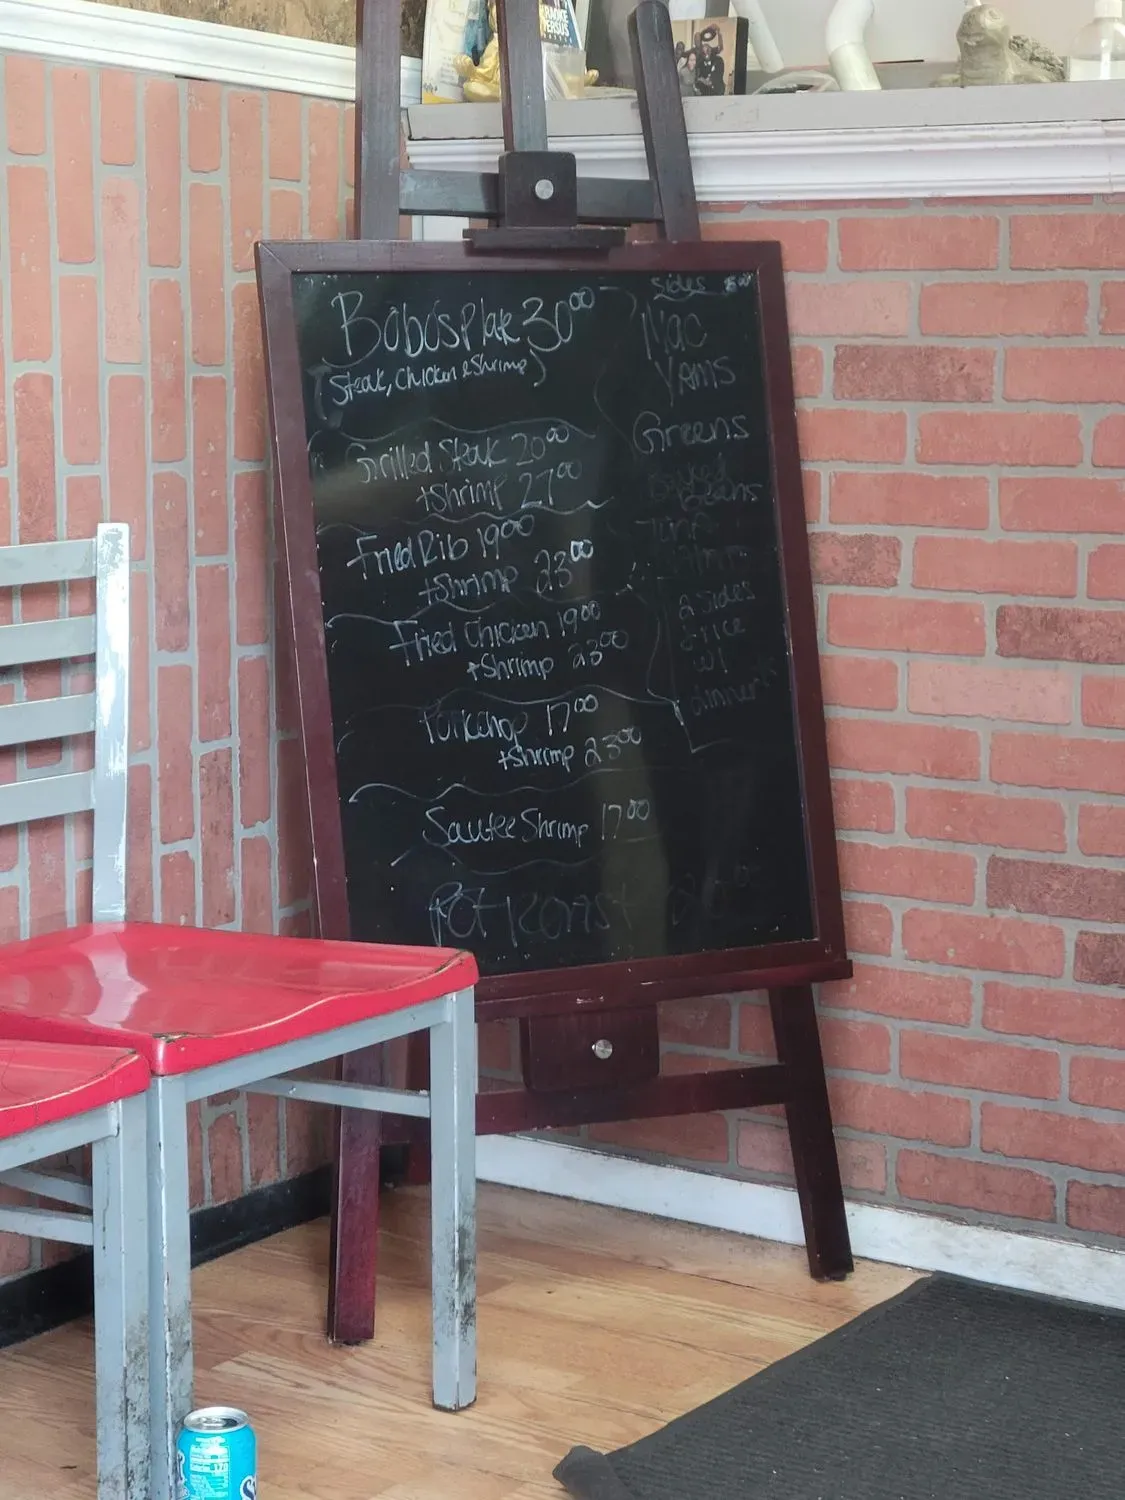 Bobo's Plate 30.00
(Steak, Chicken & Shrimp)
Grilled Steak 20.00
+Shrimp 27.00
Fried Rib 19.00
+Shrimp 23.00
Fried Chicken 19.00
+Shrimp 23.00
Porkchop 17.00
+Shrimp 23.00
Sautee Shrimp 17.00
Pot Roast
Sides
Mac
YAMS
Greens
Baked
Beans
2 Sides
& rice
w/
dinner